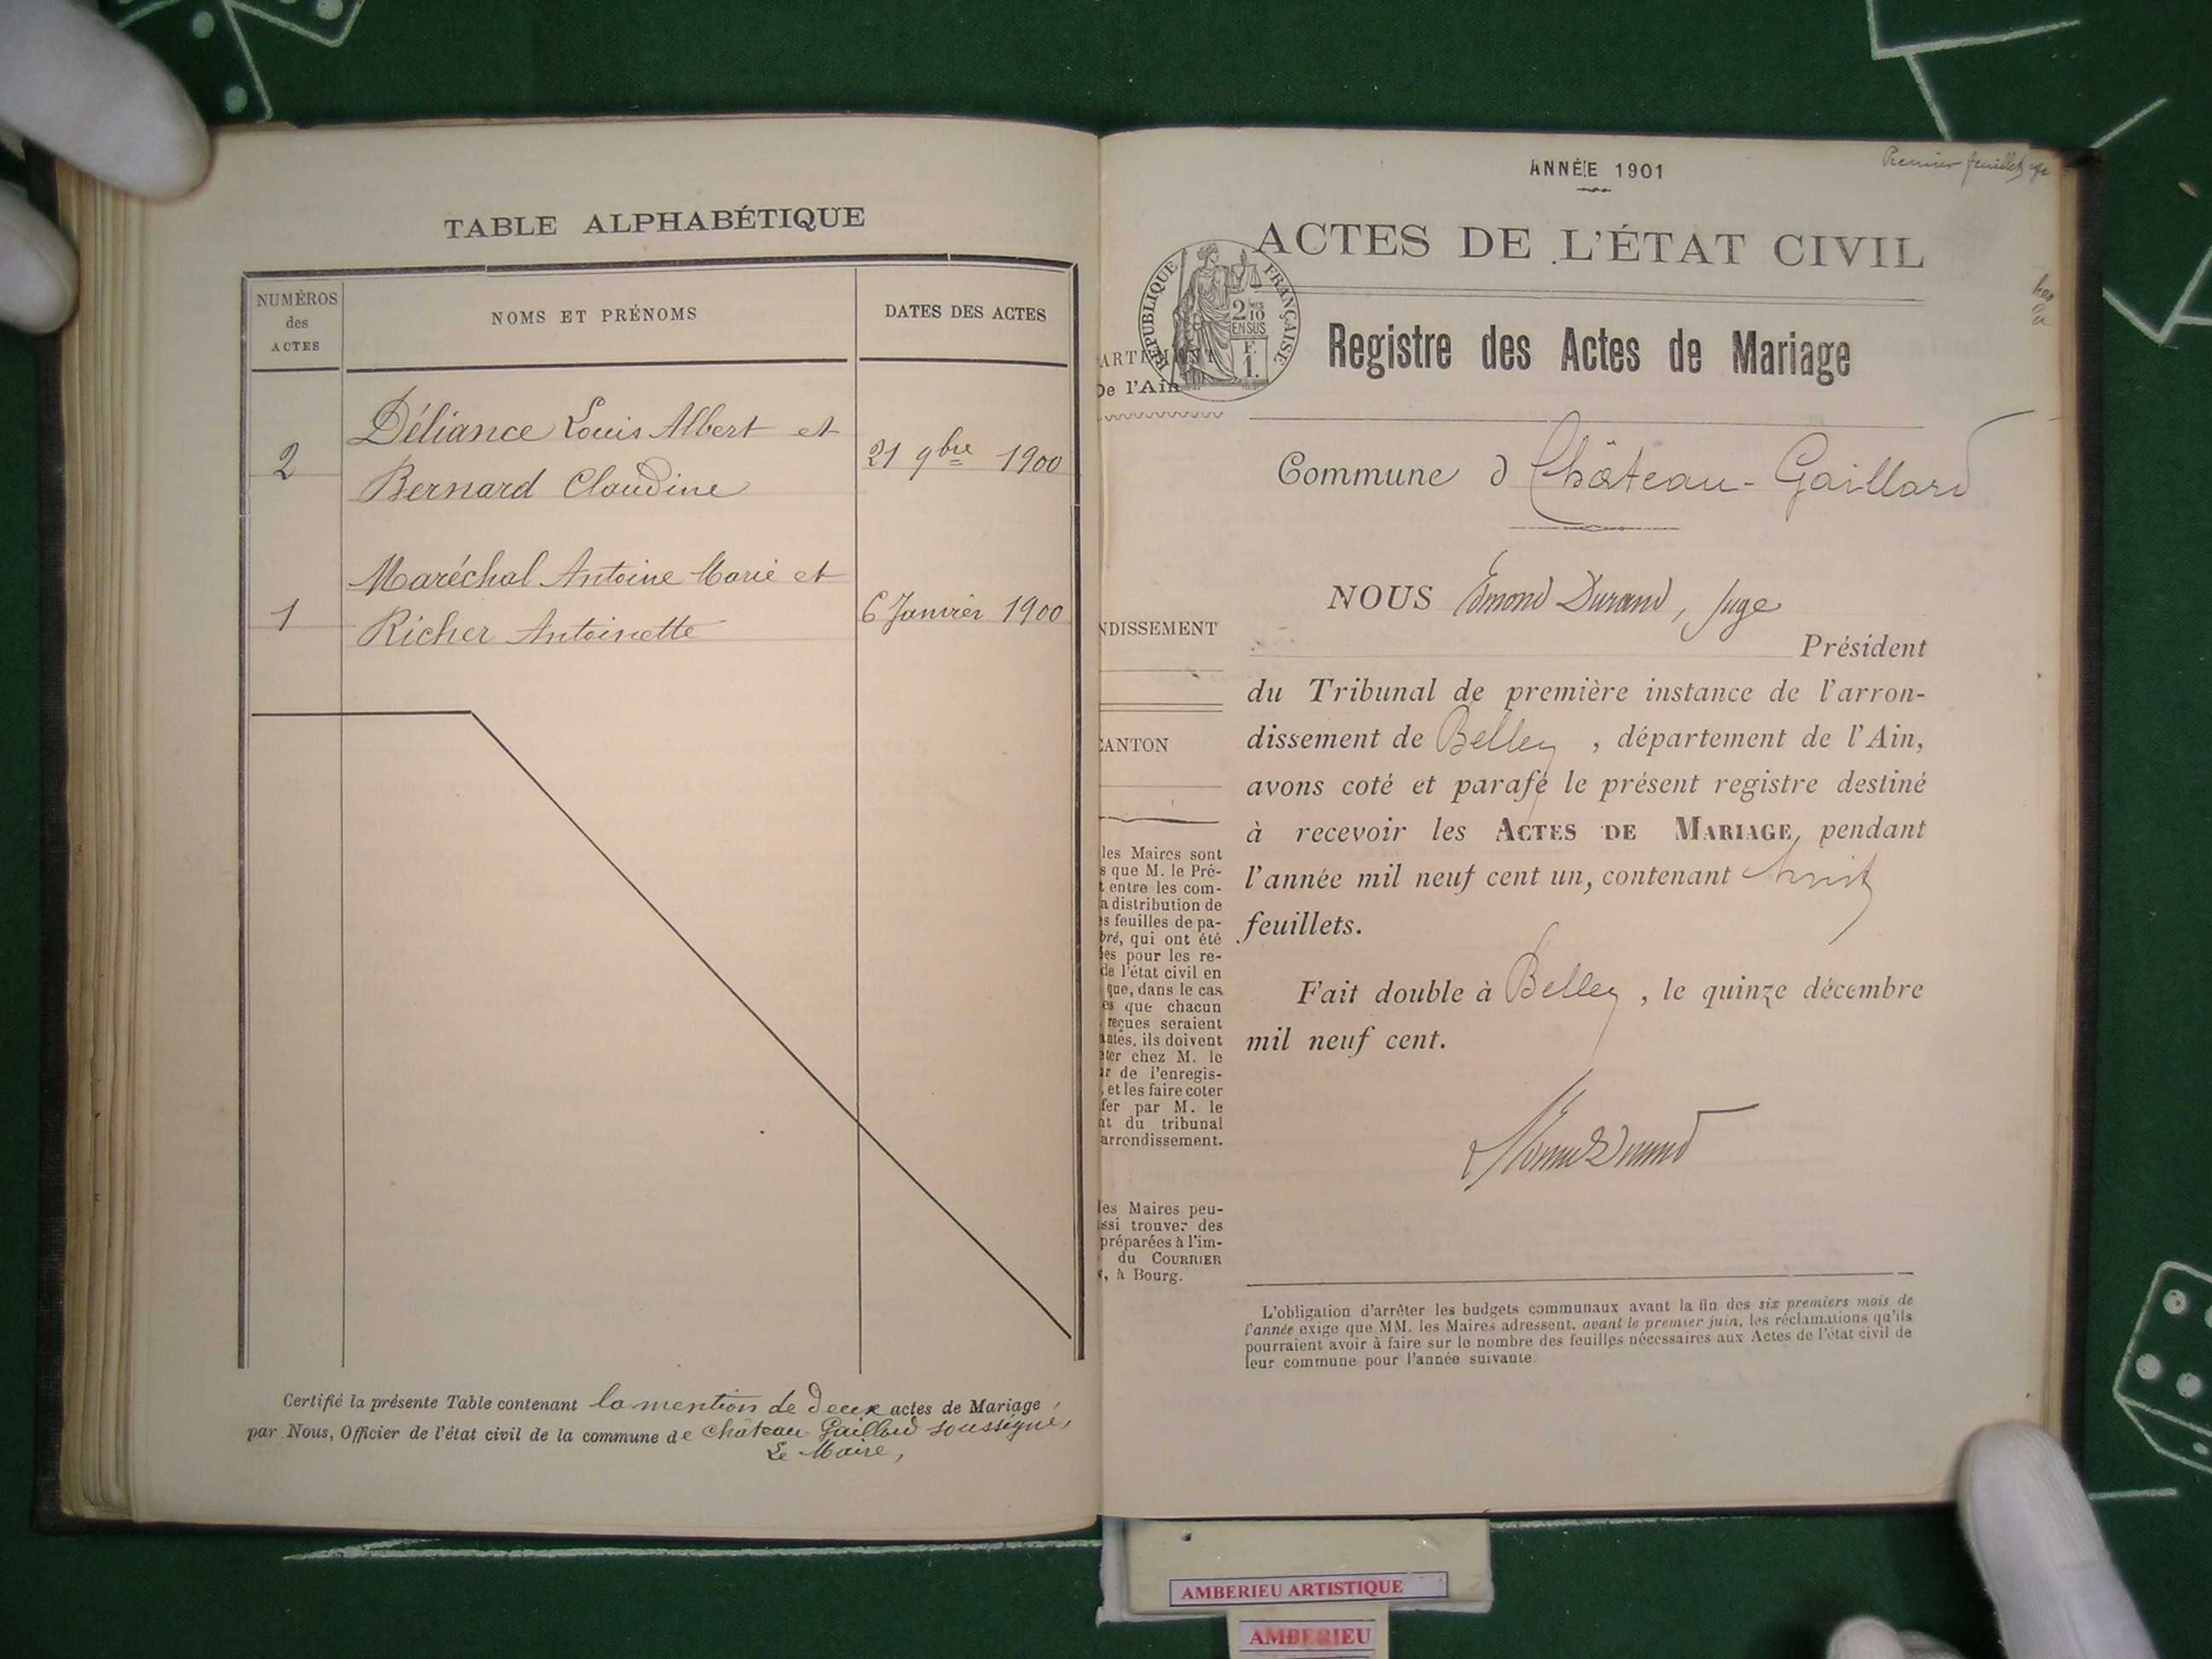 TABLE ALPHABÉTIQUE
NUMÉROS
des
ACTES
NOMS ET PRÉNOMS
DATES DES ACTES
Déliance Louis Albert et
2
21 9bre 1900
Bernard Claudine
Maréchal Antoine Marie et
1
6 Janvier 1900
Richer Antoinette
Certifié la présente Table contenant la mention de deux actes de Mariage,
par Nous, Officier de l'état civil de la commune de Château Gaillard soussigné,
Le Maire,
Premier feuillet
ANNÉE 1901
ACTES DE L'ÉTAT CIVIL
RÉPUBLIQUE FRANÇAISE
2/10
EN SUS
F.
1.
Registre des Actes de Mariage
ARTEMENT
De l'Ain
Commune d Château-Gaillard
NOUS Edmond Durand, Juge
NDISSEMENT
Président
du Tribunal de première instance de l'arron-
dissement de Belley, département de l'Ain,
CANTON
avons coté et parafé le présent registre destiné
à recevoir les ACTES DE MARIAGE, pendant
l'année mil neuf cent un, contenant huit
feuillets.
Fait double à Belley, le quinze décembre
mil neuf cent.
les Maires sont
s que M. le Pré-
t entre les com-
a distribution de
s feuilles de pa-
bré, qui ont été
es pour les re-
de l'état civil en
que, dans le cas
es que chacun
reçues seraient
antes, ils doivent
ter chez M. le
r de l'enregis-
, et les faire coter
fer par M. le
nt du tribunal
arrondissement.
les Maires peu-
ssi trouver des
préparées à l'im-
du COURRIER
, à Bourg.
L'obligation d'arrêter les budgets communaux avant la fin des six premiers mois de
l'année exige que MM. les Maires adressent, avant le premier juin, les réclamations qu'ils
pourraient avoir à faire sur le nombre des feuilles nécessaires aux Actes de l'état civil de
leur commune pour l'année suivante.
AMBERIEU ARTISTIQUE
AMBERIEU